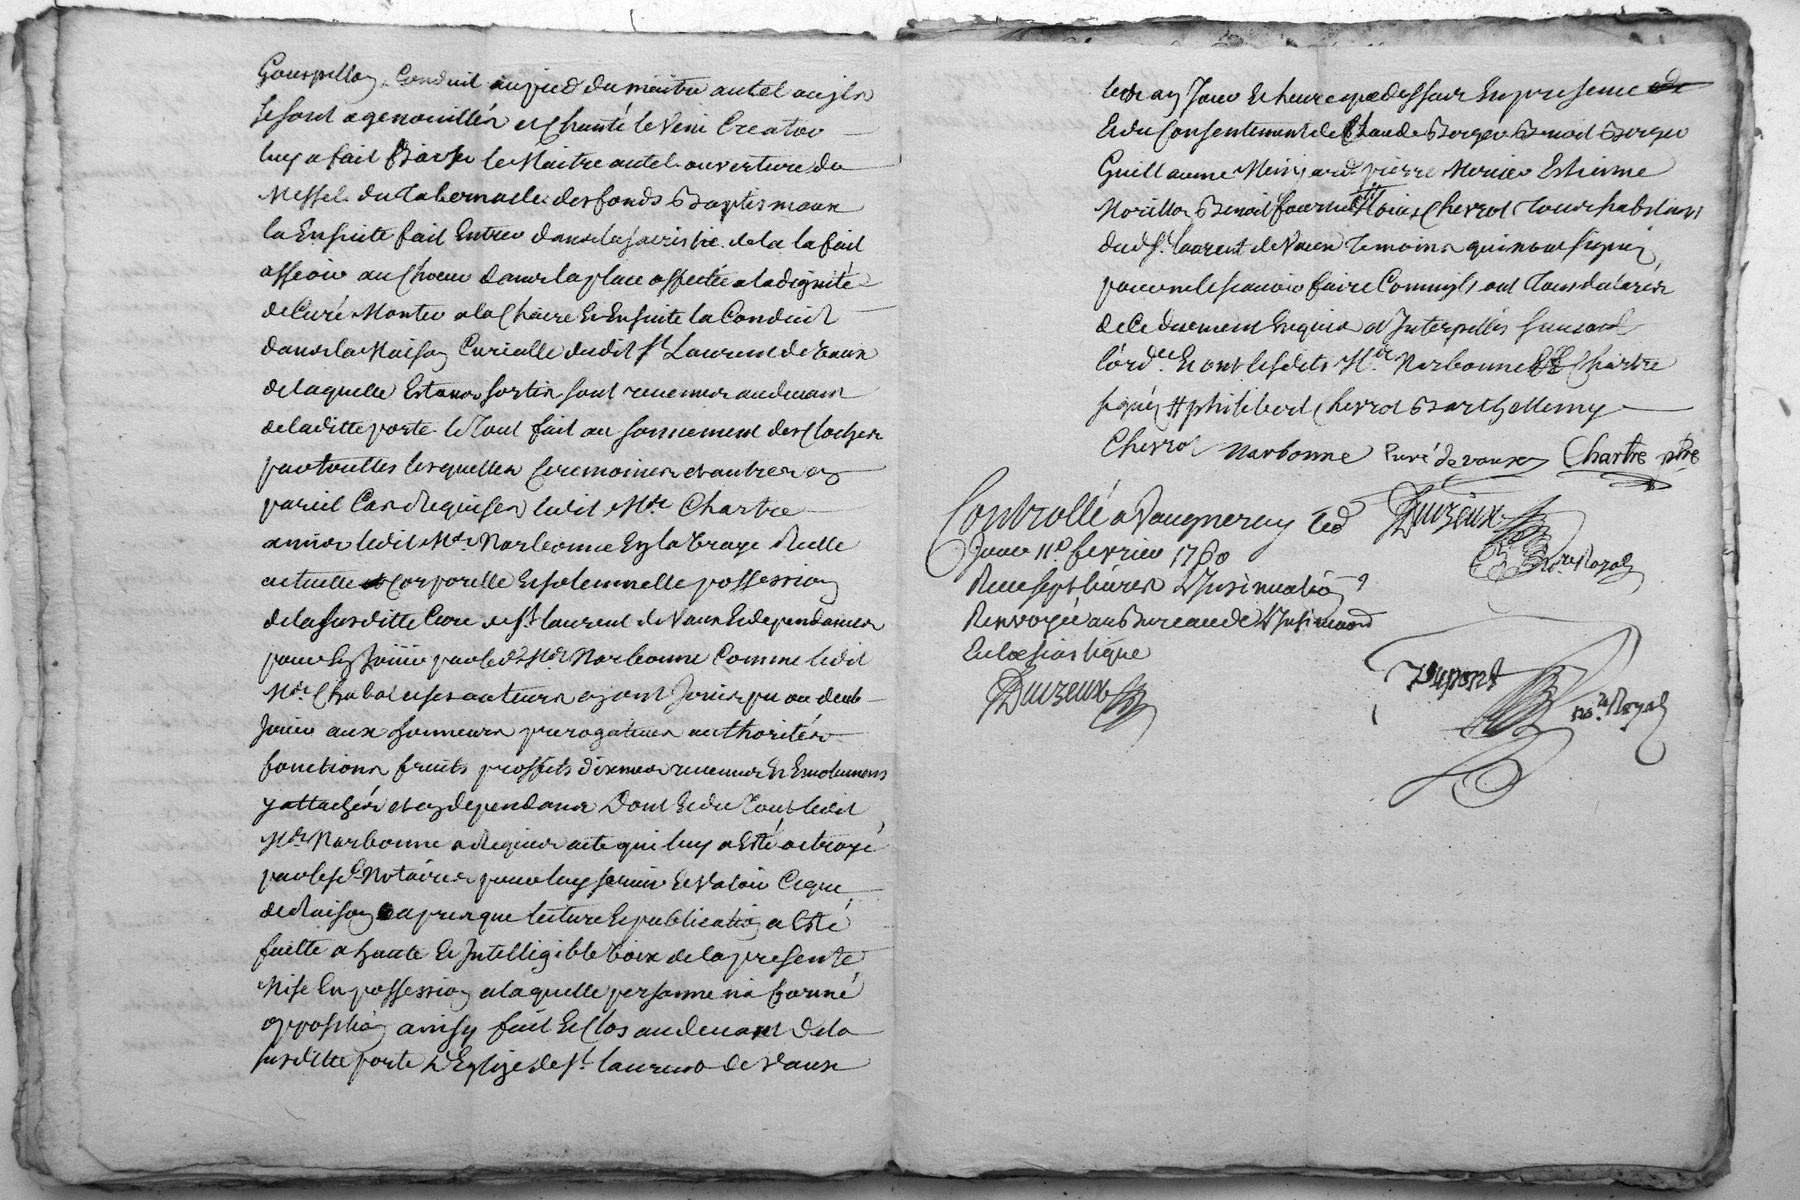 Goupillon, Conduit au pied du maitre autel ou ils
se sont agenouillés et Chanté le Veni Creator
luy a fait Baiser le Maitre autel ouverture du
Messel du Tabernacle des fonds Baptismaux
la Ensuite fait Entrer dans la sacristie de la la fait
asseoir au Choeur dans la place affectée a la dignité
de Curé Monter a la Chaire Et Ensuite la Conduit
dans la Maison Curialle dudit St Laurent de Vaux
de laquelle Estans sortis sont revenus au devant
de laditte porte le Tout fait au sonnement des Cloches
par touttes lesquelles Ceremonies et autres en
pareil Cas Requises ledit Mre Chartre
a mis ledit Mre Narbonne En la vraye Reelle
actuelle Corporelle Et solemnelle possession
de la susditte Cure de St laurent de Vaux Et dependances
pour En Jouir par led Mre Narbonne Comme ledit
Mre Chabot et ses auteurs en ont Jouis pu ou deub
Jouir aux honneurs prerogatives authorités
fonctions fruits proffits dixmes revenus Et Emolumens
y attachés et en dependans Dont Et du Tout ledit
Mre Narbonne a Requis acte qui luy a Esté octroyé
par lesd Notaires pour luy servir Et Valoir Ce que
de Raison apres que lecture Et publication a Esté
faitte a haute Et Intelligible Voix de la presente
Mise En possession a laquelle personne n'a formé
opposition ainsy fait Et Clos au devant de la
susditte porte d'Eglize de St laurent de Vaux
lesd an Jour Et heure que dessus En presence
Et du Consentement de Claude Berger Benoit Berger
Guillaume Meinjard pierre Mercier Estienne
Morillon Benoit fournel Louis Cherrot Tous habitans
dud St laurent de Vaux Temoins qui n'ont signés
pour ne le scavoir faire Comm'ils ont Tous declarés
de Ce duement Enquis et Interpellés suivant
l'ordce Et ont lesdits Mes Narbonne Chartre
signés # philibert Cherrot Barthellemy
Cherrot Narbonne Curé de vaux Chartre ptre
Controllé a Vaugneray led Duizeux
Jour 11e fevrier 1760 Nore Royal
Receu sept livres d'Insinuation
Renvoyée au Bureau de l'Insinuaon
Ecclesiastique
Duizeux
Dupont nore Royal